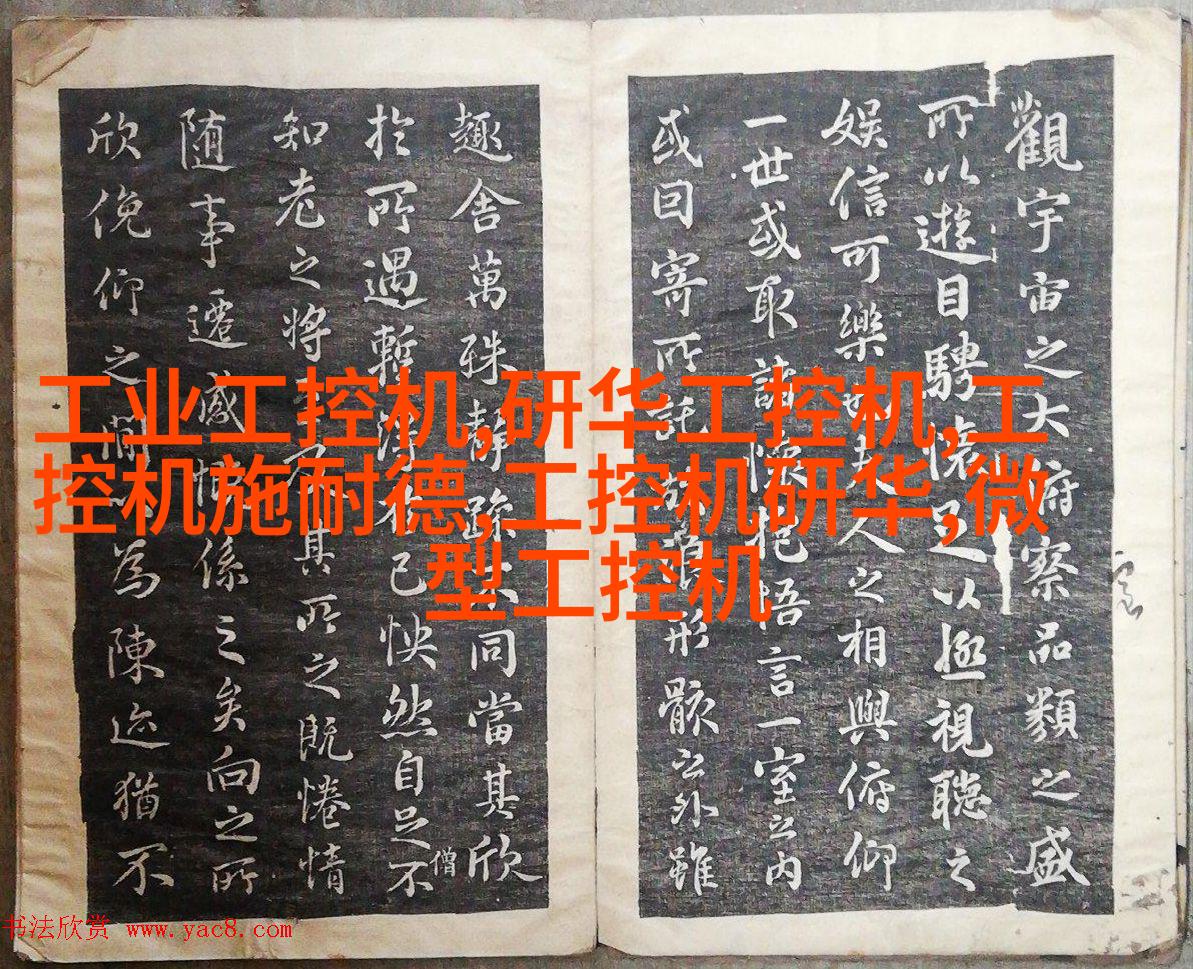 觀宇宙之大府察品類之盛
所以遊目騁懷足以極視聽之
娛信可樂也夫人之相與俯仰
一世或取諸懷抱悟言一室之內
或因寄所託放浪形骸之外雖
趣舍萬殊靜躁不同當其欣
於所遇暫得於己怏然自足不
僧
知老之將至及其所之既惓情
隨事遷感慨係之矣向之所
欣俛仰之間以為陳迹猶不
工业工控机,研华工控机,工
控机施耐德,工控机研华,微
型工控机
书法欣赏 www.yac8.com